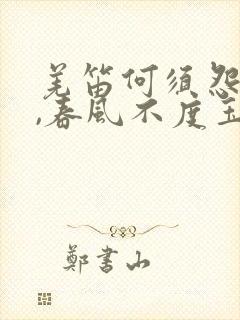 羌笛何须怨
,春風不度玉
鄭書山